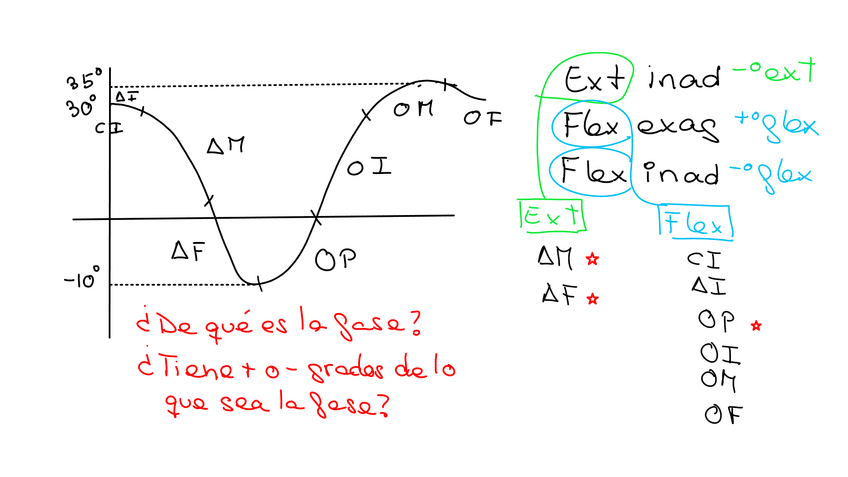 35°
30°
ΔI
CI
ΔM
OM
OF
OI
ΔF
OP
-10°
¿De qué es la fase?
¿Tiene + o - grados de lo
que sea la fase?
Ext inad -° ext
Flex exag +° flex
Flex inad -° flex
Ext
Flex
ΔM ☆
ΔF ☆
CI
ΔI
OP ☆
OI
OM
OF